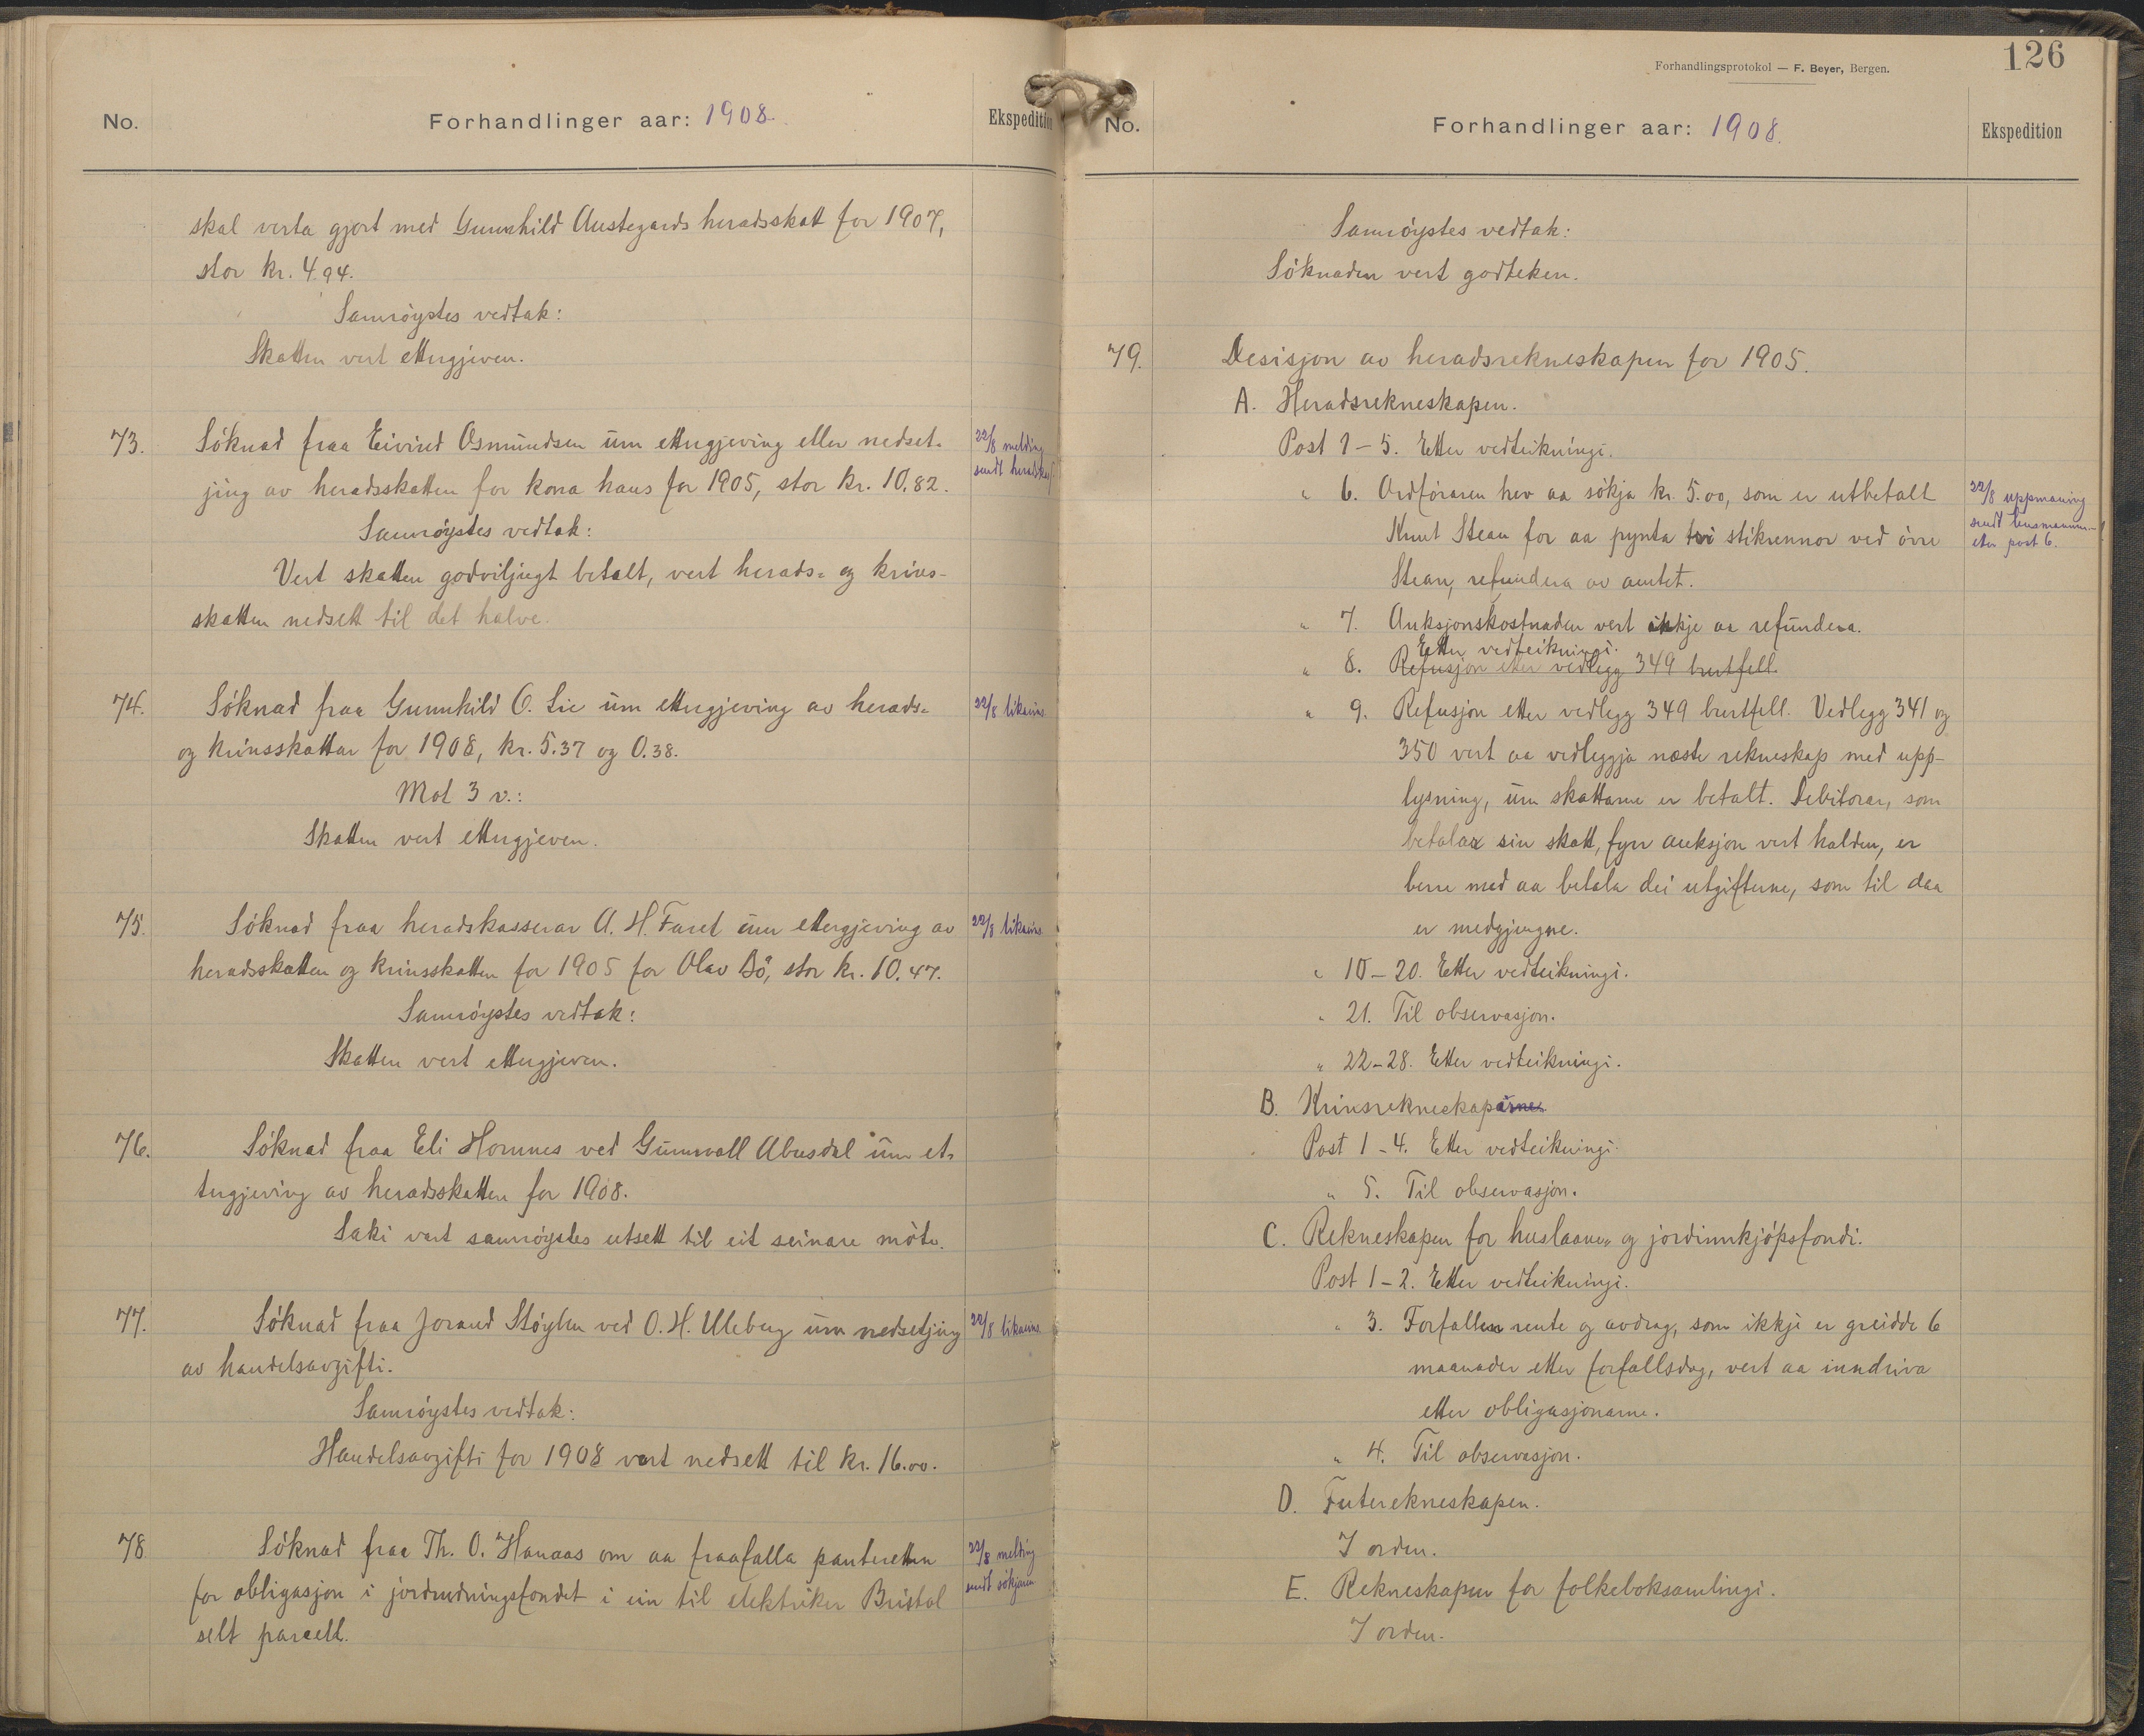 No.
Forhandlinger aar: 1908
Ekspedition
skal verta gjort med Gunnhild Austegards heradsskatt for 1907,
stor kr. 4.94.
Samröystes vedtak:
Skatten vert ettergjeven.
73.
Söknad fraa Eivind Osmundsen um ettergjeving eller nedset-
jing av heradsskatten for kona hans for 1905, stor kr. 10.82.
22/8 melding
sendt heradskass.
Samröystes vedtak:
Vert skatten godviljugt betalt, vert herads- og krins-
skatten nedsett til det halve.
74.
Söknad fraa Gunnhild O. Lie um ettergjeving av herads-
og krinsskattar for 1908, kr. 5.37 og 0.38.
22/8 likeeins.
Mot 3 v.:
Skatten vert ettergjeven.
75.
Söknad fraa heradskasserar A. H. Faret um ettergjeving av
heradsskatten og krinsskatten for 1905 for Olav Bö, stor kr. 10.47.
22/8 likeeins.
Samröystes vedtak:
Skatten vert ettergjeven.
76.
Söknad fraa Eli Hornnes ved Gunnvall Abusdal um et-
tergjeving av heradsskatten for 1908.
Saki vart samröystes utsett til eit seinare möte.
77.
Söknad fraa Jorand Stöylen ved O. H. Uleberg um nedsetjing
av handelsavgifti.
22/8 likeeins.
Samröystes vedtak:
Handelsavgifti for 1908 vert nedsett til kr. 16.00.
78.
Söknad fraa Th. O. Hanaas om aa fraafalla panteretten
for obligasjon i jordrydningsfondet i ein til elektriker Bristol
selt parcell.
22/8 melding
sendt sökjaren
Forhandlingsprotokol — F. Beyer, Bergen.
126
No.
Forhandlinger aar: 1908.
Ekspedition
Samröystes vedtak:
Söknaden vert godteken.
79.
Desisjon av heradsrekneskapen for 1905.
A. Heradsrekneskapen.
Post 1 – 5. Etter vedteikningi.
" 6. Ordföraren hev aa sökja kr. 5.00, som er utbetalt
Knut Stean for aa pynta tvi stikrennor ved övre
Stean, refundera av amtet.
22/8 uppmaning
sendt lensmannen
eter post 6.
" 7. Auksjonskostnaden vert ikkje aa refundera.
Etter vedteikningi.
" 8. Refusjon etter vedlegg 349 burtfell.
" 9. Refusjon etter vedlegg 349 burtfell. Vedlegg 341 og
350 vert aa vedleggja næste rekneskap med upp-
lysning, um skattarne er betalt. Debitorar, som
betalar sin skatt, fyrr auksjon vert halden, er
berre med aa betala dei utgifterne, som til daa
er medgjengne.
" 10 – 20. Etter vedteikningi.
" 21. Til observasjon.
" 22 – 28. Etter vedteikningi.
B. Krinsrekneskaparne
Post 1 – 4. Etter vedteikningi.
" 5. Til observasjon.
C. Rekneskapen for huslaane- og jordinnkjöpsfondi.
Post 1 – 2. Etter vedteikningi.
" 3. Forfallen rente og avdrag, som ikkji er greidde 6
maanader etter forfallsdag, vert aa inndriva
etter obligasjonarne.
" 4. Til observasjon.
D. Futerekneskapen.
I orden.
E. Rekneskapen for folkeboksamlingi.
I orden.